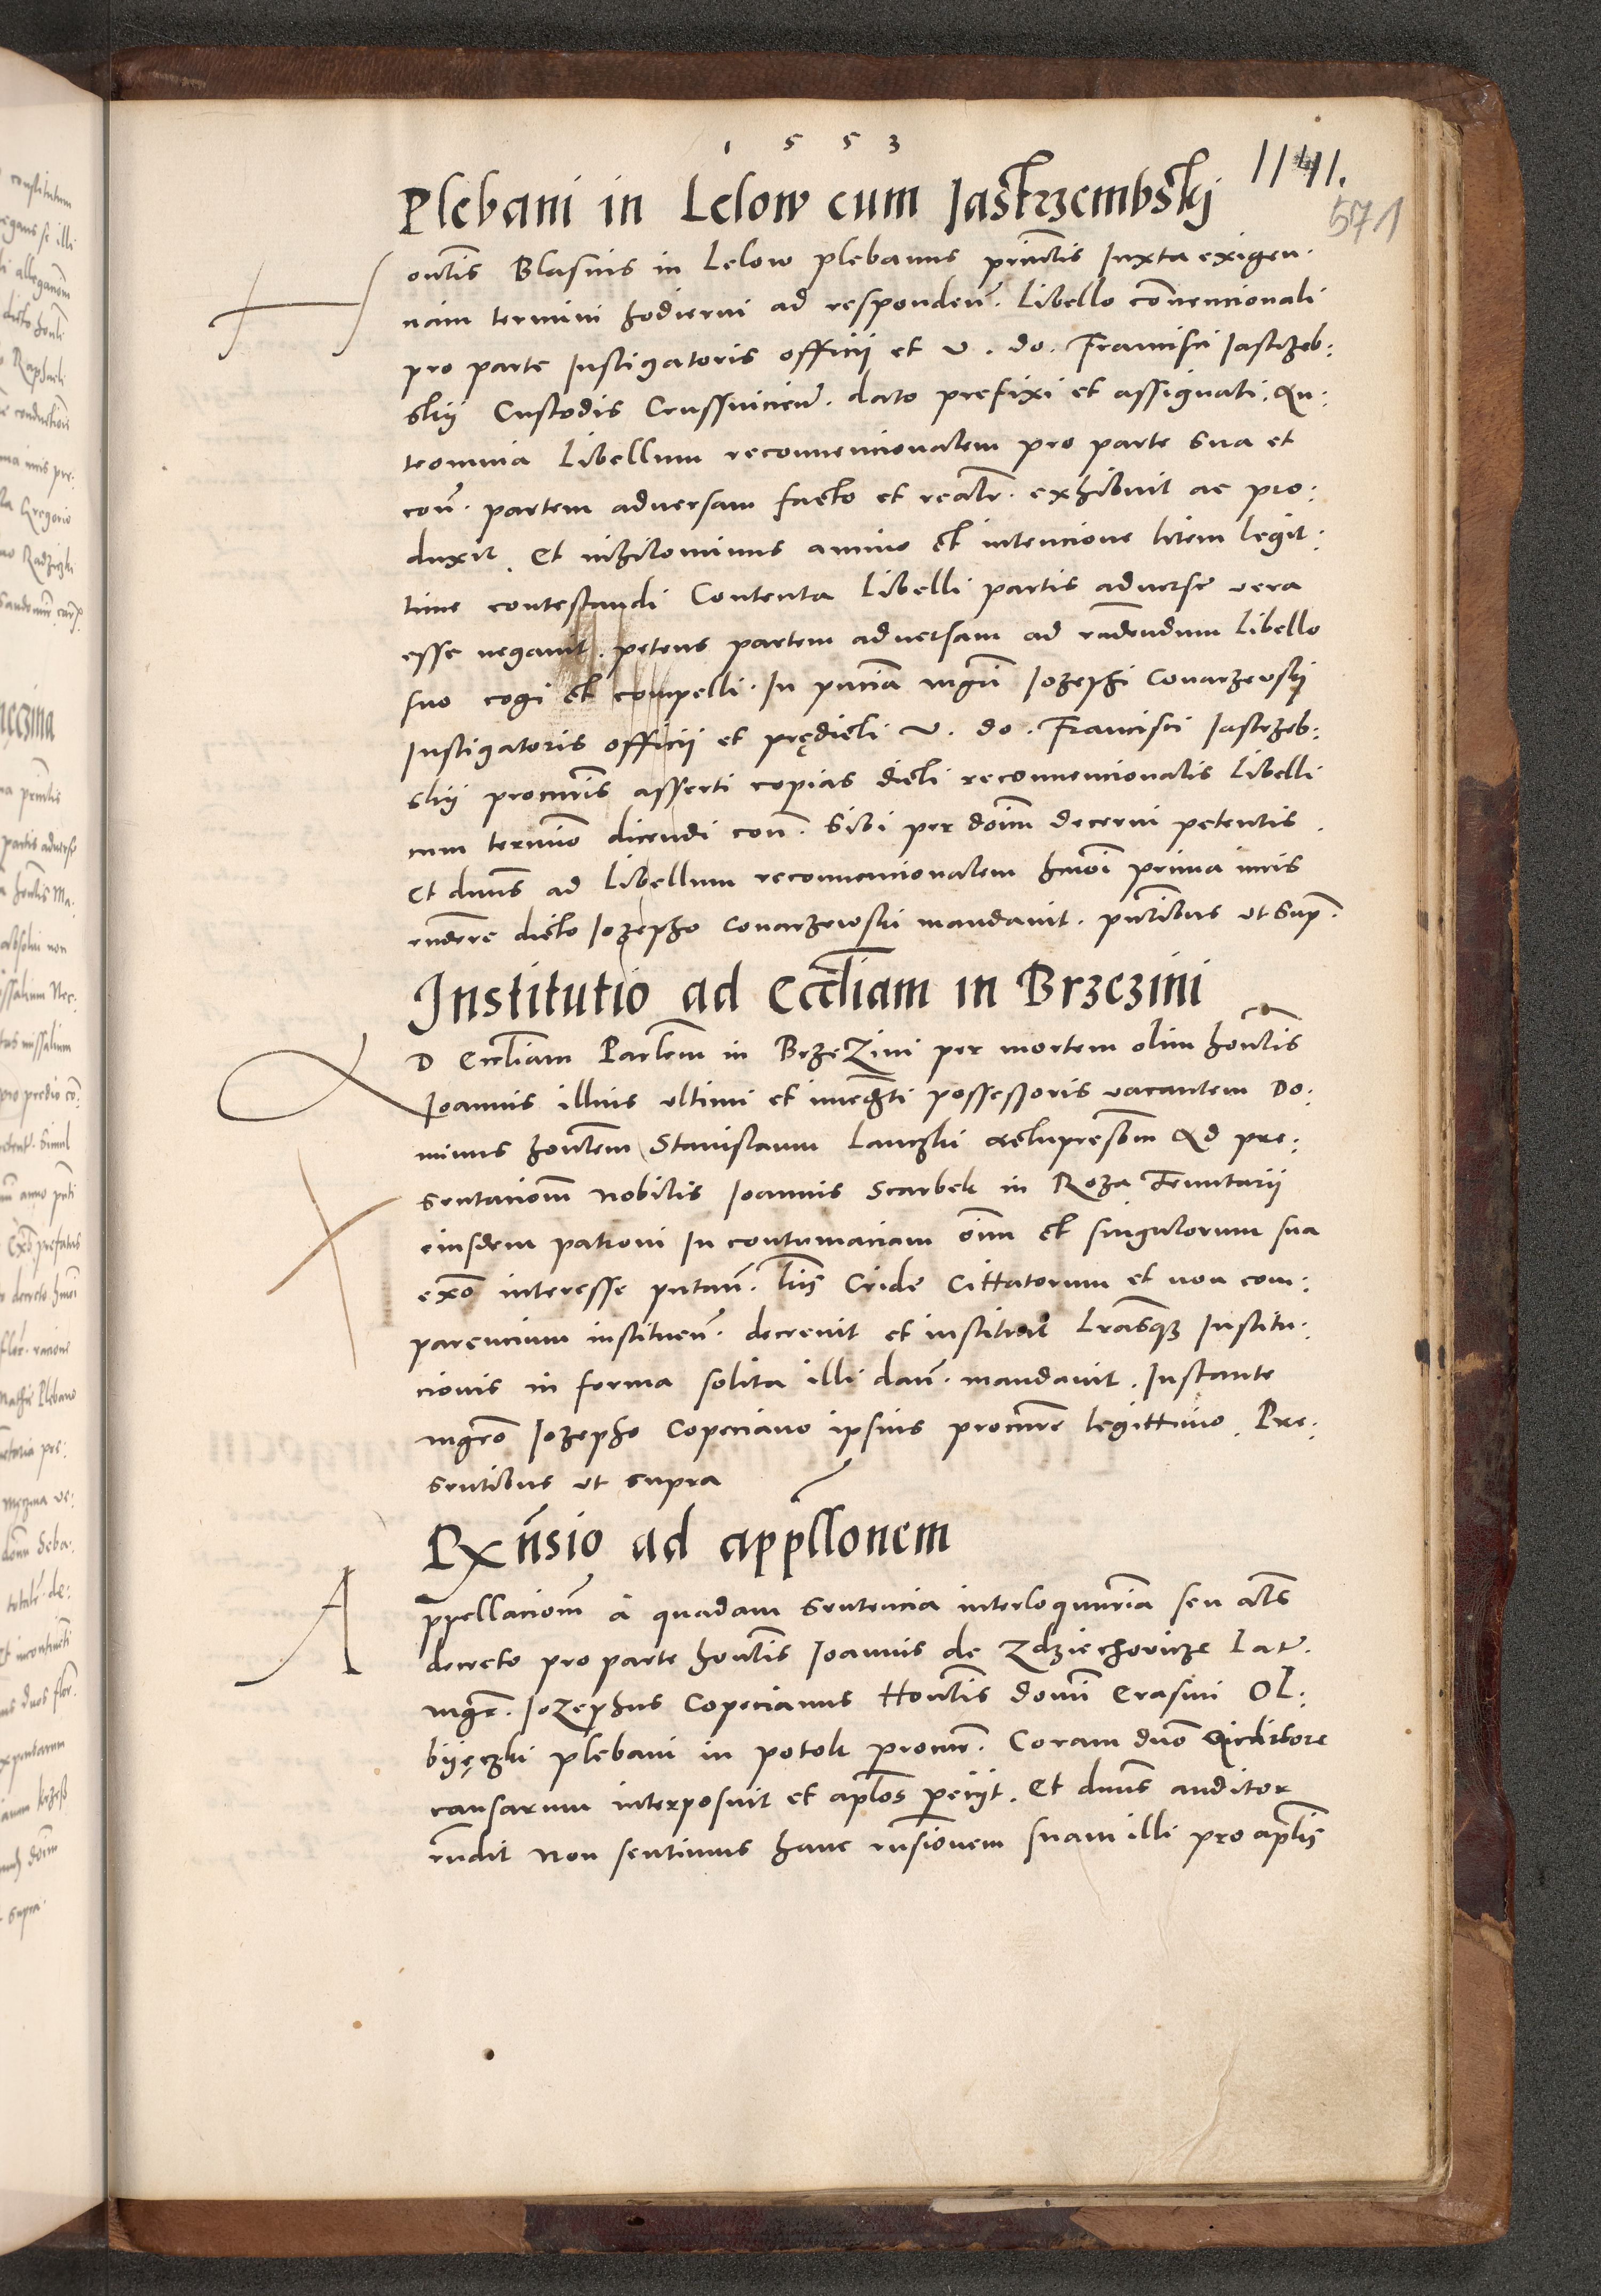 1 5 5 3
1141.
571
Plebani in Lelow cum Jastrzembskj
Honestis Blasius in Lelow plebanus principalis Juxta exigen⸱
nciam termini hodierni ad responden̄. Libello conventionali
pro parte Instigatoris officii et v. do. Francisci Jastrzeb:
skij Custodis Crussvicien̄. dato prefixi et assignati. An:
teomnia Libellum reconvencionalem pro parte sua et
con̄. partem adversam facto et realr̄. exhibuit ac pro:
duxit. Et nihilominus animo et intencione litem legit:
time contestandi Contenta Libelli partis adverse vera
esse negavit. petens partem adversam ad rn̄dendum Libello
suo cogi et compelli. In pn̄ciā mgr̄i Jozephi Covarzewskij
Instigatoris officii et prędicti v. do. Francisci Jastrzeb:
skij procur̄is asserti copias dicti reconvencionalis Libelli
cum termino dicendi con̄. Sibi per dom̄ decerni petentis.
Et dnūs ad Libellum reconvencionalem hmōi prima iuris
rn̄dere dicto Jozepho Covarzewski mandavit. pn̄tibus ut Sup̄.
Institutio ad Eccl̄iam in Brzezini
AD Eccl̄iam Par̄lem in Brzezini per mortem olim hon̄tis
Joannis illius ultimi et immed̄ti possessoris vacantem Do:
minus hon̄tem Stanislaum Lanczki Ad pre:
sentacionem nobilis Joannis Scarbek in Roza Tenutarii
eiusdem patroni In contumaciam om̄iu et singulorum sua
exn̄o interesse putan̄. Cride Cittatorum et non com:
parencium instituen̄. decrevit et instituit Lr̄asqꝫ Institu⸱
cionis in forma solita illi dan̄. mandavit. Instante
mgr̄o Jozepho Copeciano ipsius procur̄e legittimo. Pre:
sentibus ut supra
Rx̄nsio ad appellōnem
Appellacionem ā quadam Sentencia interloqutur̄ia seu
decreto pro parte hon̄tis Joannis de Zdziechovicze Lat̄.
mgr̄. Jozephus Copecianus Hon̄tis domini Erasmi Ol:
bijęczki plebani in potok procur̄. Coram dnō Auditore
causarum interposuit et ap̄los peciit. Et dnūs auditor
rn̄dit non sentimus hanc rn̄sionem suam illi pro ap̄lis